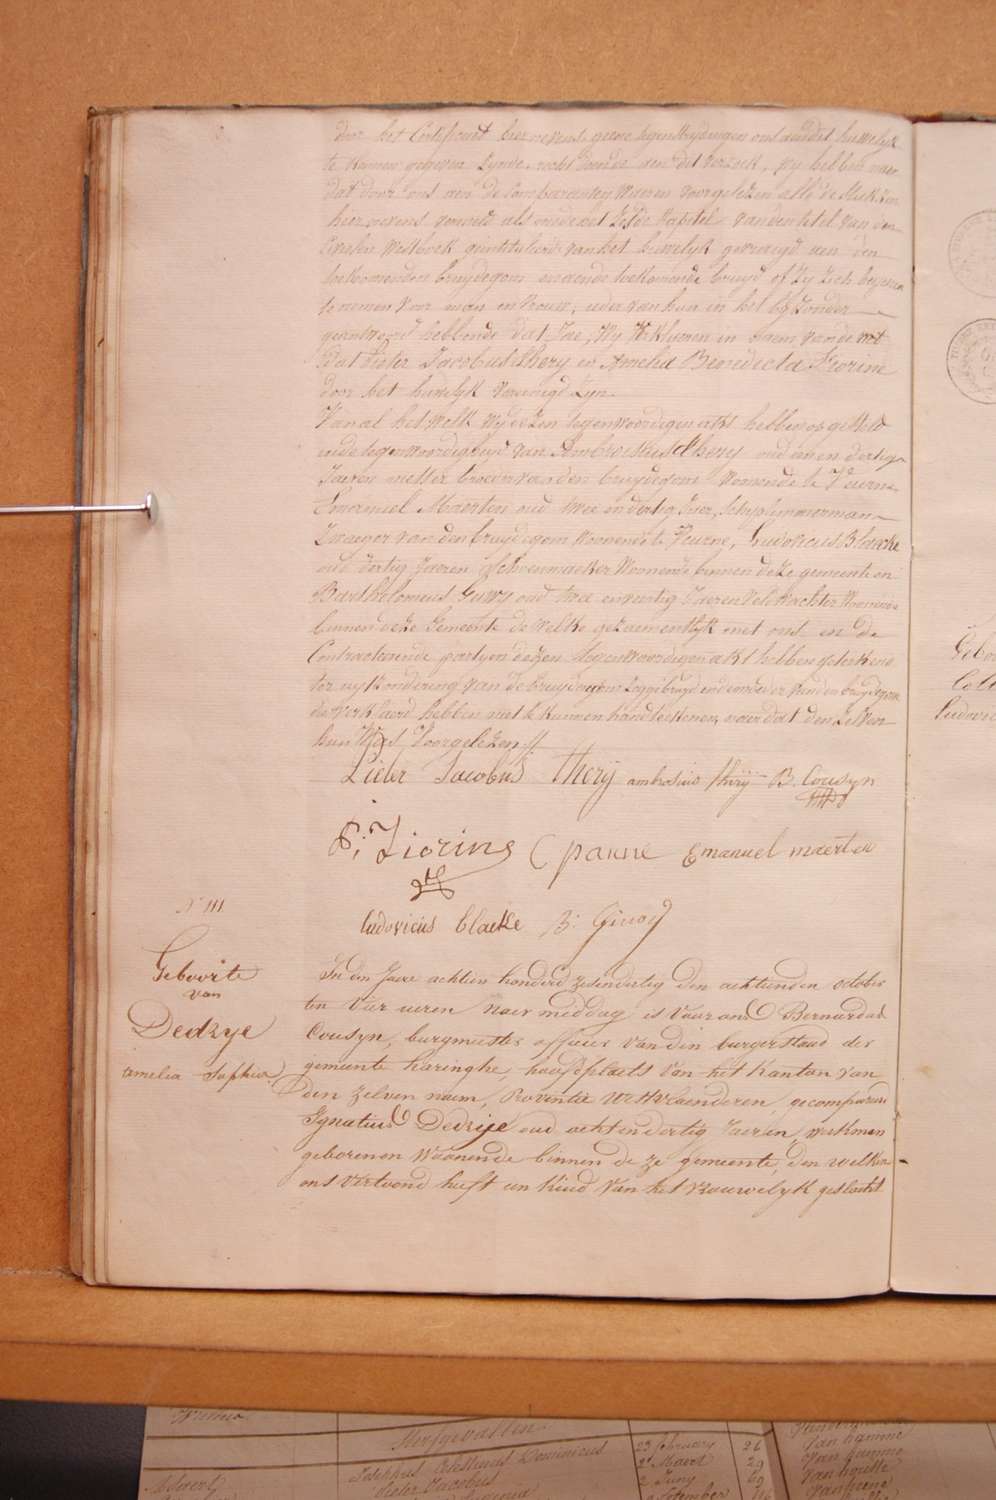 door het Certificaet hier nevens geene tegenstrydingen ontrent dit huwelyk
te komen gegeven zynde, recht doende aen dit verzoek, wy hebben naer
dat door ons aen de Comparanten waeren voorgelezen alle de stukken
hier nevens vermeld als ook het zesde Kapitel van den titel van den
Civilen Wetboek geintituleerd van het huwelyk gevraegd aen den
toekomenden bruydegom en aende toekomende bruyd of zy zich begeeren
te nemen voor man en vrouw, ieder van hun in het byzonder
geantwoord hebbende dat Jae, Wy Verklaeren in naem van de wet
Dat Pieter Jacobus Thery en Amelia Benedicta Ziorine
door het huwelyk vereenigd zyn.
Van al het welk wy dezen tegenwoordigen akt hebben opgesteld
in de tegenwoordigheyd van Ambrosius Thery oud een en dertig
Jaeren metser broeder van den bruydegom woonende te Veurne
Emanuel Maerten oud twee en dertig Jaer, Schiptimmerman
Zwaeger van den bruydegom woonende te Veurne, Ludovicus Blaeke
oud dertig Jaeren Schoenmaeker Woonende binnen deze gemeente en
Bartholomeus Guwy oud twee en veertig Jaeren veldwachter Woonende
binnen deze Gemeente de welke gezaementlyk met ons en de
Contracteerende partyen dezen tegenwoordigen akt hebben geteekend
ter uytzondering van de bruyd en de moeder van den bruydegom
die verklaerd hebben niet te kunnen handteekenen, naer dat den zelven
hun is Voorgelezen //
Pieter Jacobus Therÿ ambrosius therÿ B. Cousyn
P: Ziorine C parme Emanuel maerten
ludovicus blaeke B: Giwoy
N 111
Geboorte
van
Dedrye
amelia Sophia
In den Jaere achtien honderd zesendertig den achttienden october
ten vier uren naer middag is voor ons Bernardus
Cousyn, burgmeester officier van den burgerstand der
gemeente haringhe, hoofdplaets van het Kanton van
den zelven naem, Proventie Westvlaenderen, gecompareerd
Ignatius Dedrye oud achtendertig Jaeren, werkman
geboren en Woonende binnen de ze gemeente, den welken
ons vertoond heeft een Kind van het vrouwelyk geslacht
Geboo
ludovic
Sterfgevallen
Josephus Celestinus Dominicus
23 february
26
Pieter Jacobus
2 Maert
29
2 Juny
69
Van hamme
Van houtte